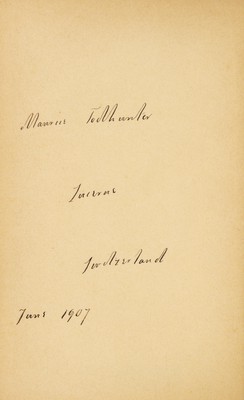 Maurice Todhunter
Lucerne
Switzerland
June 1907